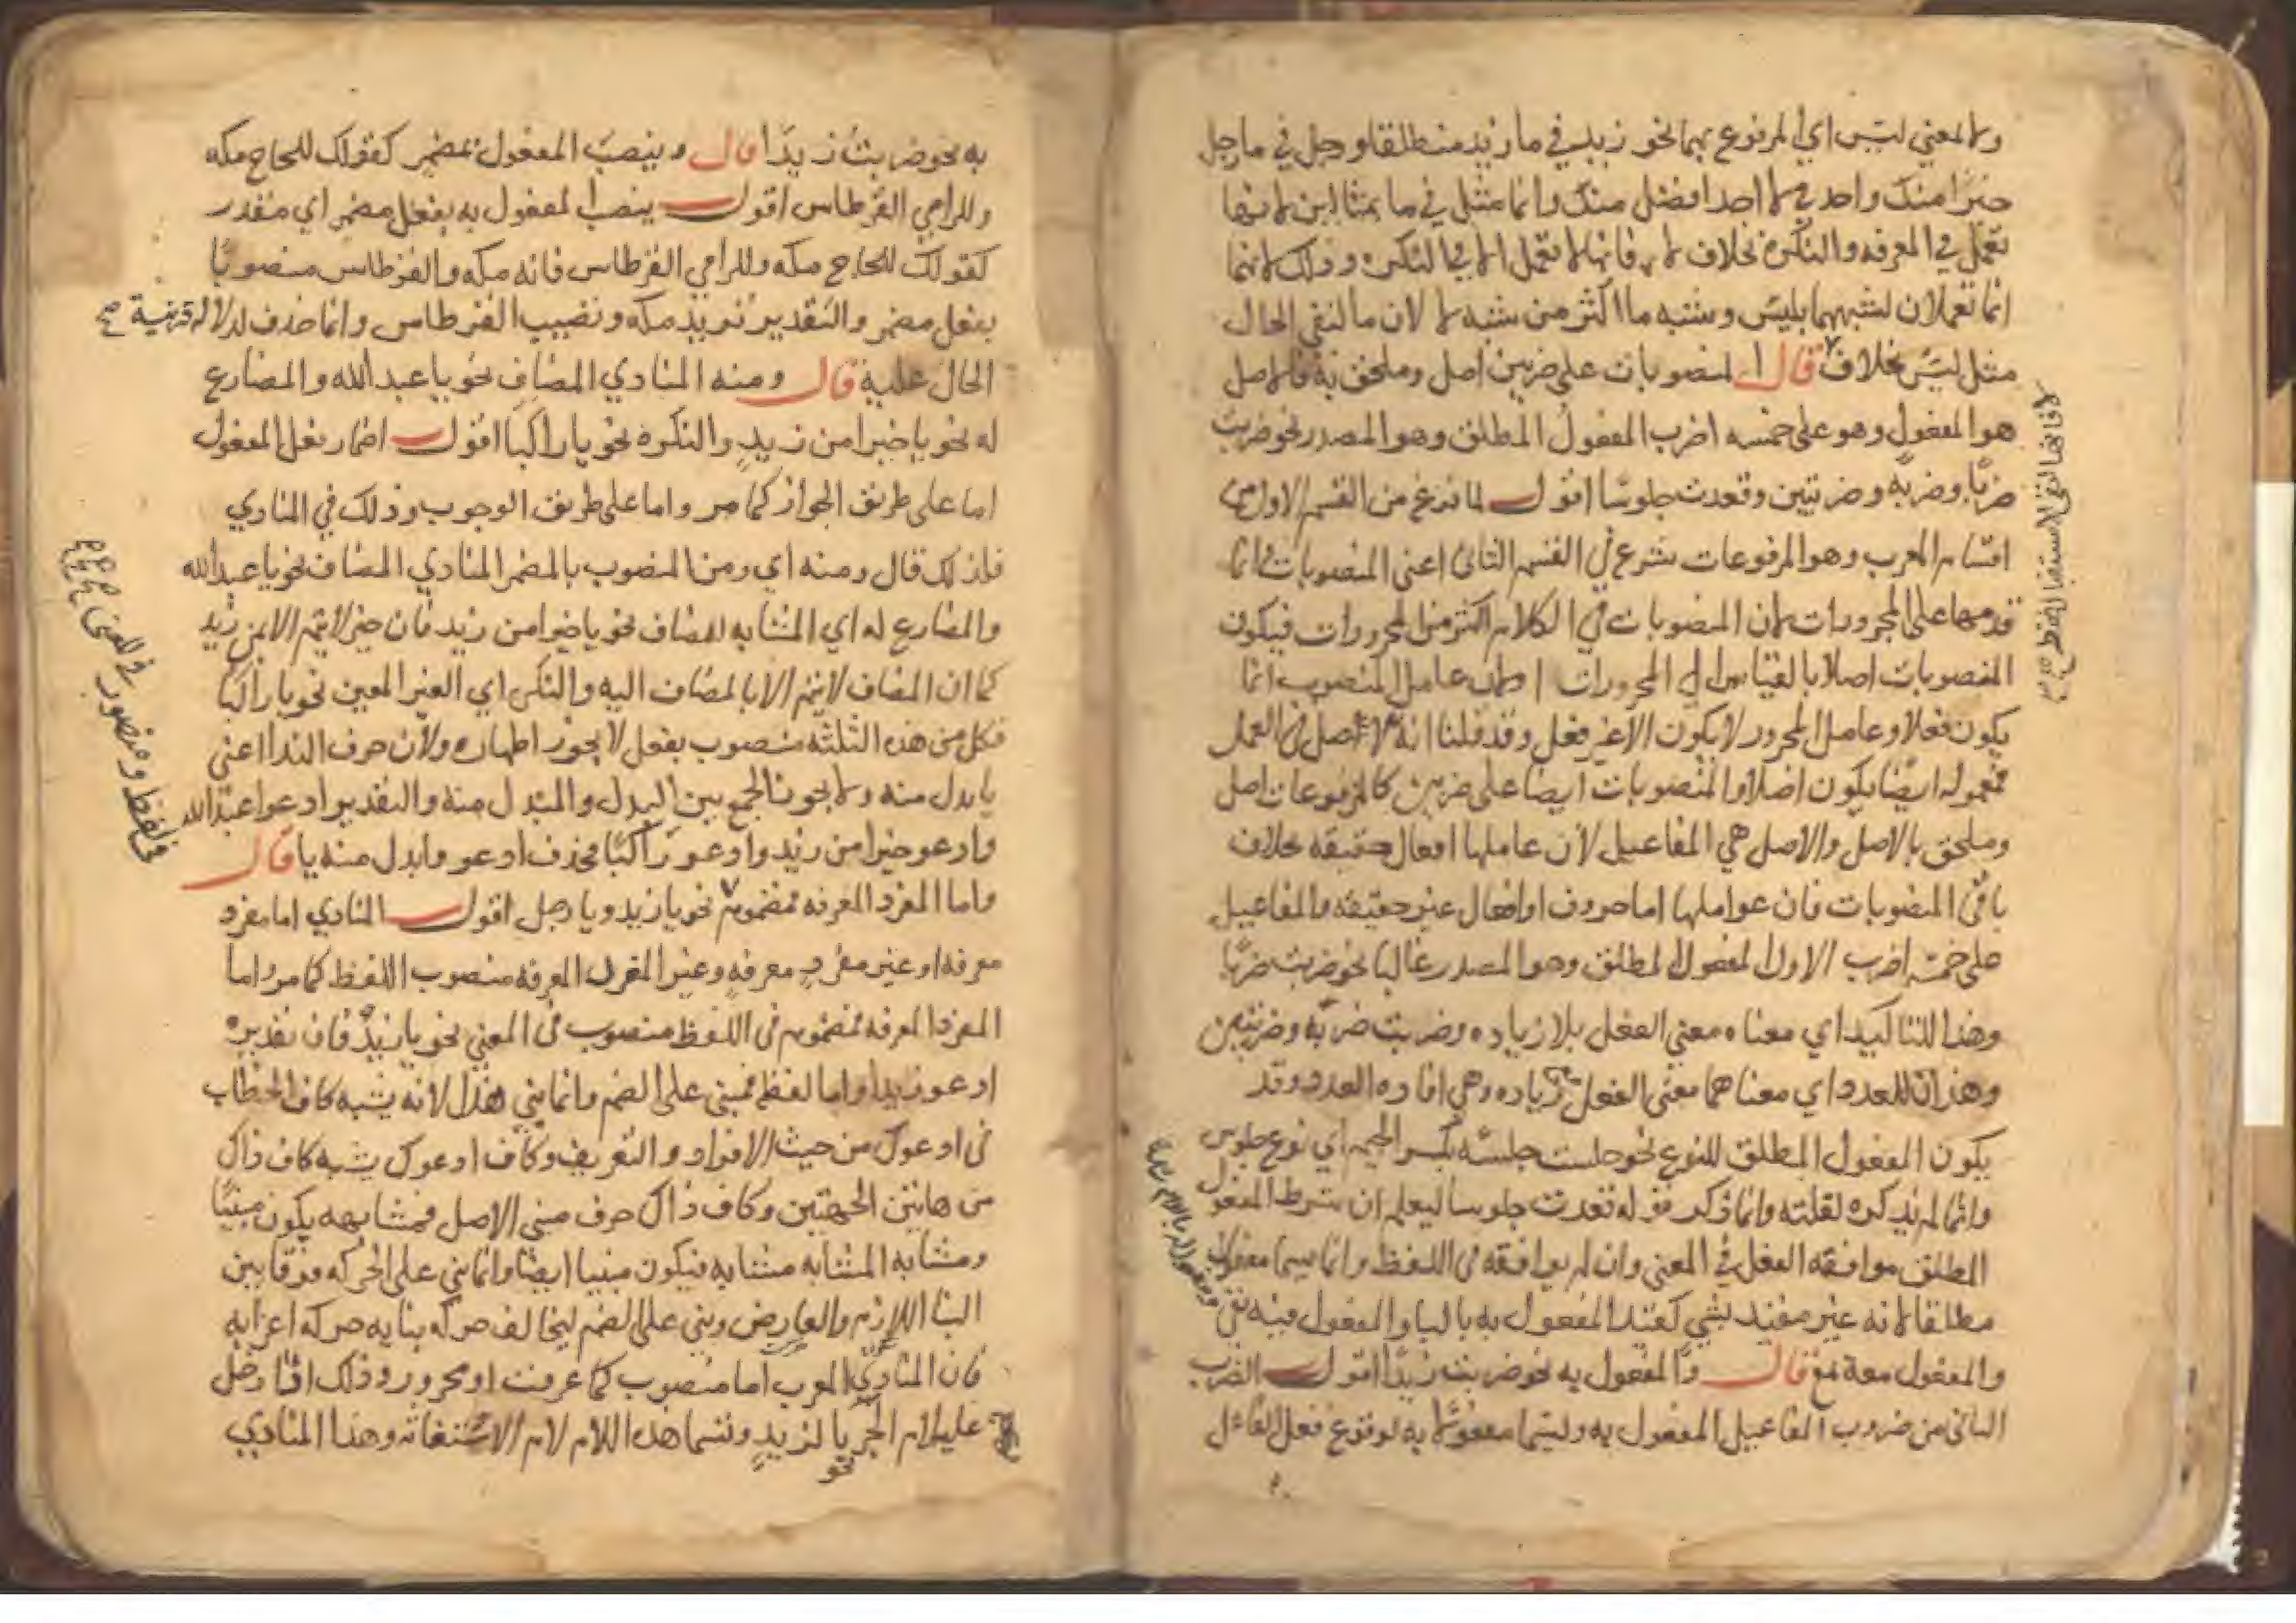 ولا لمعني ليس اي المرفوع بهما نحو زيد في ما زيد منطلقا ورجل في ما رجل
خيرا منك واحد في لا احد افضل منك وانما مثل في ما بمثالين لانها
تعمل في المعرفه والنكره بخلاف لا فانها لا تعمل الا في النكره وذلك لانهما
انما تعملان لشبههما بليس وشبه ما اكثر من شبه لا لان ما لنفي الحال
مثل ليس بخلاف لا قال المنصوبات على ضربين اصل وملحق به فالاصل
هو المفعول وهو على خمسه اضرب المفعول المطلق وهو المصدر نحو ضربت
ضربًا وضربه وضربتين وقعدت جلوسًا اقول لما فرغ من القسم الاول من
اقسام المعرب وهو المرفوعات شرع في القسم الثاني اعني المنصوبات وانما
قدمها على المجرورات لان المنصوبات في الكلام اكثر من المجرورات فيكون
المنصوبات اصلا بالقياس الي المجرورات او لان عامل المنصوب انما
يكون فعلا وعامل المجرور لا يكون الا غير فعل وقد قلنا انه الاصل في العمل
فمعموله ايضا يكون اصلا والمنصوبات ايضا على ضربين كالمرفوعات اصل
وملحق بالاصل والاصل هي المفاعيل لان عاملها افعال حقيقه بخلاف
باقي المنصوبات فان عواملها اما حروف او افعال غير حقيقه والمفاعيل
على خمسه اضرب الاول المفعول المطلق وهو المصدر غالبا نحو ضربت ضربًا
وهذا للتاكيد اي معناه معني الفعل بلا زياده وضربت ضربه وضربتين
وهذان للعدد اي معناهما معني الفعل مع زياده وهي افاده العدد وقد
يكون المفعول المطلق للنوع نحو جلست جلسه بكسر الجيم اي نوع جلوس
وانما لم يذكره لقلته وانما ذكر قوله قعدت جلوسا ليعلم ان شرط المفعول
المطلق موافقه الفعل في المعني وان لم يوافقه في اللفظ وانما سمي مفعولا
مطلقا لانه غير مقيد بشي كقيد المفعول به بالبا والمفعول فيه بفي
والمفعول معه بمع قال والمفعول به نحو ضربت زيدًا اقول الضرب
الثاني من ضروب المفاعيل المفعول به وليسما مفعولا به لوقوع فعل الفاعل
لا فانها لنفي الاستقبال فقط صح
ومفعول له باللام
به نحو ضربت زيدًا قال وينصب المفعول بمضمر كقولك للحاج مكه
وللرامي القرطاس اقول ينصب المفعول به بفعل مضمر اي مقدر
كقولك للحاج مكه وللرامي القرطاس فانه مكه والقرطاس منصوبًا
بفعل مضمر والتقدير تريد مكه وتصيب القرطاس وانما حذف لدلاله قرينة صح
الحال عليه قال ومنه المنادي المضاف نحو يا عبد الله والمضارع
له نحو يا خيرا من زيدٍ والنكره نحو يا راكبا اقول اضمار فعل المفعول
اما على طريق الجواز كما مر واما على طريق الوجوب وذلك في المنادي
فلذلك قال ومنه اي ومن المنصوب بالمضمر المنادي المضاف نحو يا عبد الله
والمضارع له اي المشابه للمضاف نحو يا خيرا من زيد فان خير لا يتم الا بمن زيد
كما ان المضاف لا يتم الا بالمضاف اليه والنكره اي الغير المعين نحو يا راكبا
فكل من هذه الثلثه منصوب بفعل لا يجوز اظهاره ولان حرف الندا اعني
يا بدل منه ولا يجوز الجمع بين البدل والمبدل منه والتقدير ادعوا عبد الله
وادعو خيرا من زيد وادعو راكبًا فحذف ادعو وابدل منه يا قال
واما المفرد المعرفه فمضموم نحو يا زيد ويا رجل اقول المنادي اما مفرد
معرفه او غير مفردٍ معرفهٍ وغير المفرد المعرفه منصوب اللفظ كما مر واما
المفرد المعرفه فمضموم في اللفظ منصوب في المعني نحو يا زيدُ فان تقديره
ادعو زيدا واما لفظه فمبني على الضم وانما بني هذا لانه يشبه كاف الخطاب
في ادعوك من حيث الافراد والتعريف وكاف ادعوك يشبه كاف ذاك
من هاتين الجهتين وكاف ذاك حرف مبني الاصل فمشابهه يكون مبنيًا
ومشابه المشابه مشابه فيكون مبنيا ايضا وانما بني على الحركه فرقا بين
البنا اللازم والعارض وبني على الضم ليخالف حركه بنايه حركه اعرابه
فان المنادي المعرب اما منصوب كما عرفت او مجرور وذلك اذا دخل
عليه لام الجر نحو يا لزيدٍ وتسما هذه اللام لام الاستغاثه وهذا المنادي
في اللفظ ومنصور في المعنى